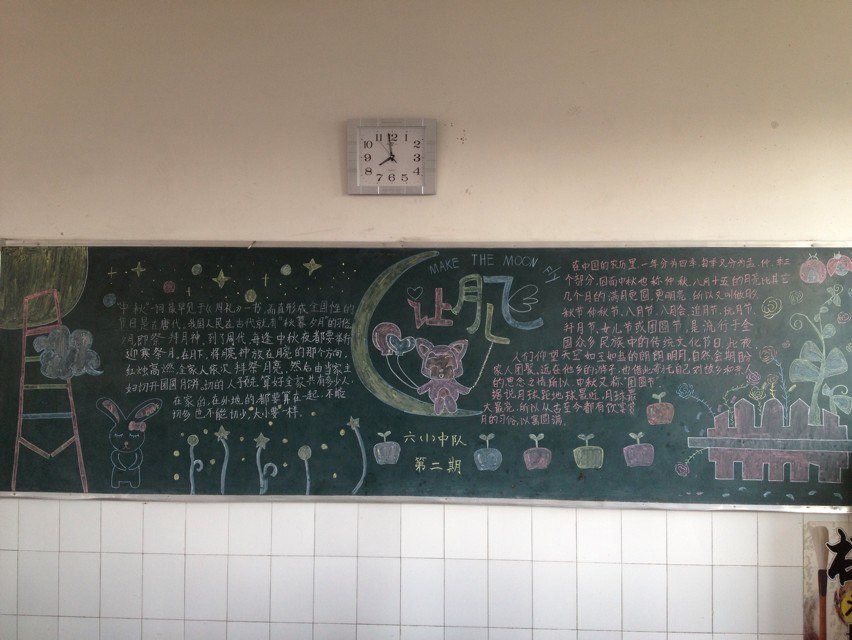 11 12 1
10 2
9 3
8 4
7 6 5
MAKE THE MOON FLY
让月儿飞
"中秋"一词最早见于《周礼》一书,而真形成全国性的
节日是在唐代。我国人民在古代就有"秋暮夕月"的习俗
夕月,即祭拜月神。到了周代,每逢中秋夜都要举行
迎寒祭月。在月下,将月亮神放在月亮的那个方向,
红烛高燃,全家人依次拜祭月亮,然后由当家主
妇切开团圆月饼。切的人预先算好全家共有多少人,
在家的,在外地的都要算在一起,不能
切多也不能切少,大小要一样。
在中国的农历里,一年分为四季,每季又分为孟、仲、季三
个部分,因而中秋也称仲秋。八月十五的月亮比其它
几个月的满月更圆,更明亮,所以又叫做
秋节、仲秋节、八月节、八月会、追月节、玩月节、
拜月节、女儿节或团圆节,是流行于全
国众多民族中的传统文化节日。此夜
人们仰望天空如玉如盘的朗朗明月,自然会期盼
家人团聚。远在他乡的游子,也借此寄托自己对故乡和亲人
的思念之情。所以,中秋又称"团圆节"。
据说月球距地球最近,月球最
大最亮,所以从古至今都有饮宴赏
月的习俗,以寓圆满。
六(1)中队
第二期